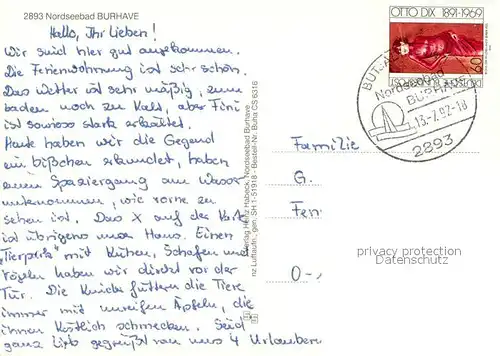 2893 Nordseebad BURHAVE
Hallo, Ihr Lieben!
Wir sind hier gut angekommen.
Die Ferienwohnung ist sehr schön.
Das Wetter ist sehr mäßig, zum
baden noch zu kalt, aber Fini
ist sowieso stark erkältet.
Heute haben wir die Gegend
ein bißchen erkundet, haben
einen Spaziergang am Wasser
unternommen, wie vorne zu
sehen ist. Das X auf der Karte
ist übrigens unser Haus. Einen
"Tierpark" mit Kühen, Schafen und
Vögeln haben wir direkt vor der
Tür. Die Kinder füttern die Tiere
immer mit unreifen Äpfeln, die
ihnen köstlich schmecken. Seid
ganz lieb gegrüßt von uns 4 Urlaubern
Verlag Heinz Habeck, Nordseebad Burhave
nz Luftaufn.-gen. SH 1-51918 - Bestell-Nr. Buha CS 6316
OTTO DIX 1891-1969
60
Nordseebad
BURHAVE
13-7.92-18
2893
Familie
G.
Fer
O-
privacy protection
Datenschutz